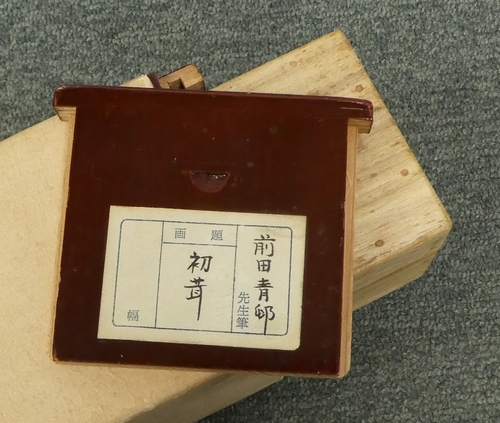 前田青邨
先生筆
画題
初茸
幅